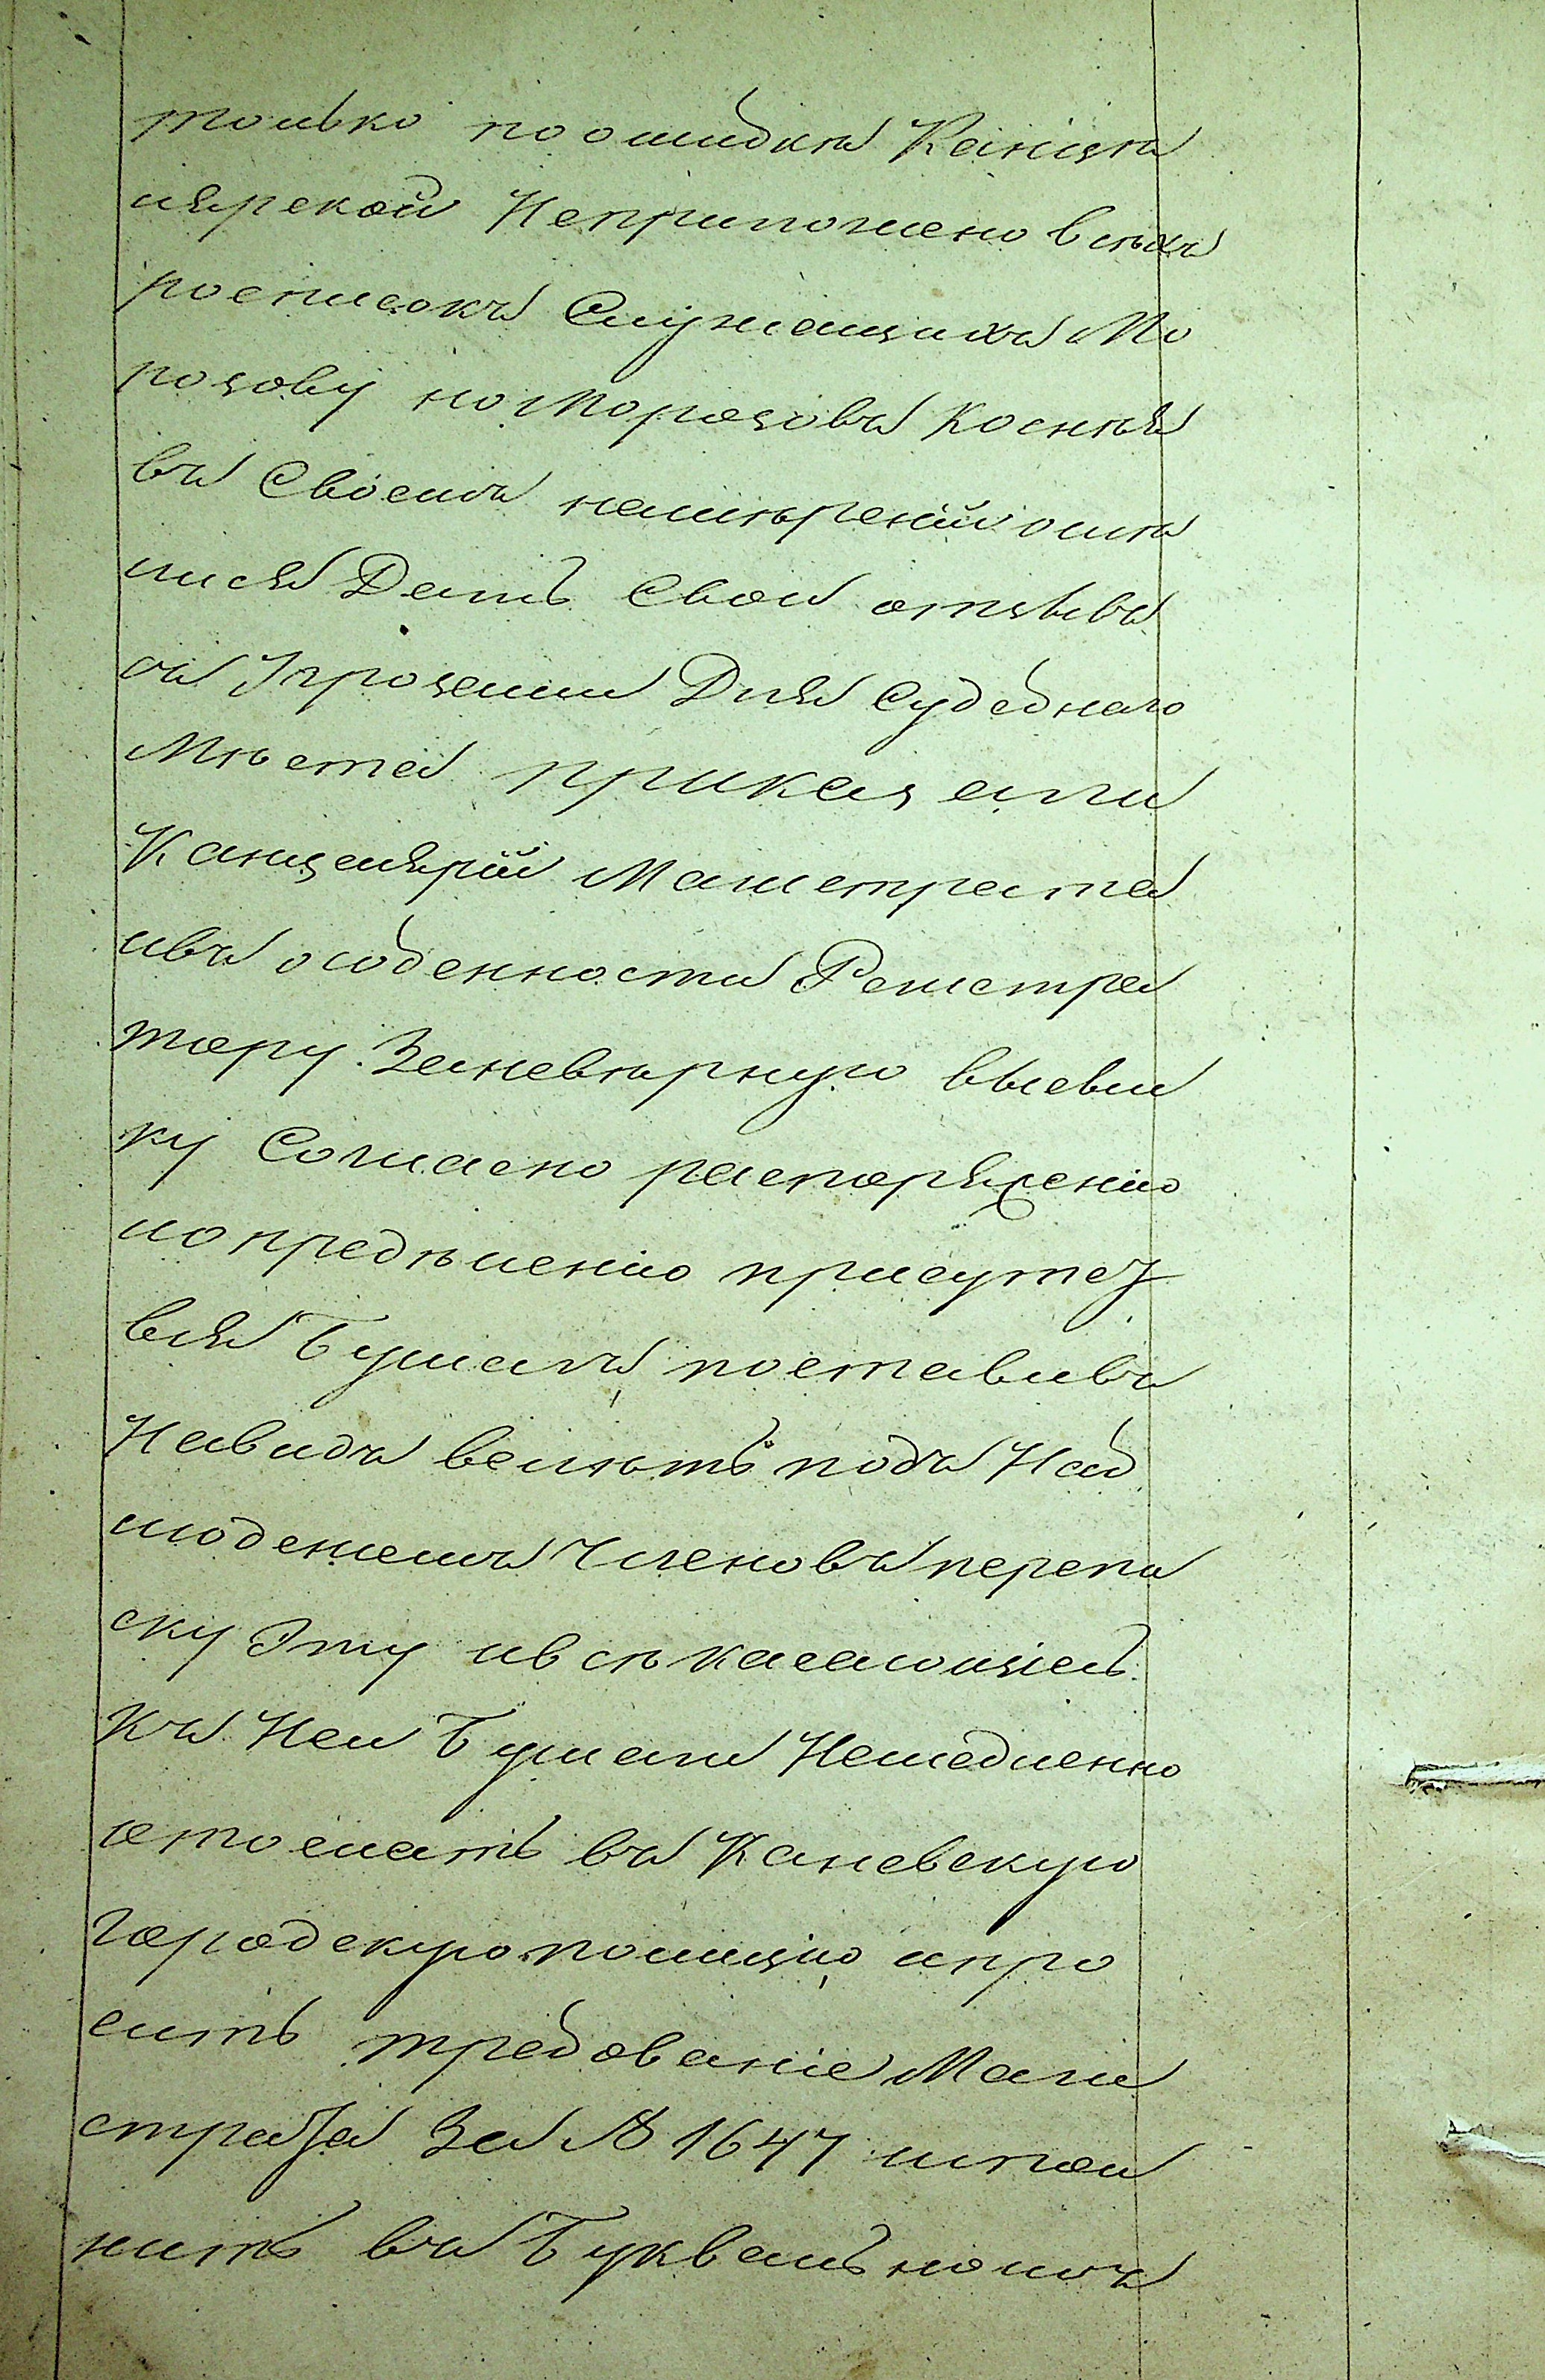 только поошибкѣ Канцѣ
лярской Неприложено всѣхъ
росписокъ Служащихъ Мо
розову но Морозовъ Коснѣя
въ Своемъ намѣреніи оши
лися Дать Свой отзывъ
съ Угрозами Для Судебнаго
Мѣста приказали
Канцеляріи Магистрата
ивъ особенности Регистра
тору Заневѣрную высыл
ку Согласно распоряженію
иопредѣленію присутст
вія Бумагъ поставивъ
Навидъ велѣть подъ Наб
люденіемъ Членовъ перепи
ску Эту ивсѣ касающіесь
къ Ней Бумаги Немедленно
отослать въ Каневскую
городскую полицію ипро
сить требованіе Маги
страта За № 1647 испол
нить въ Буквальномъ